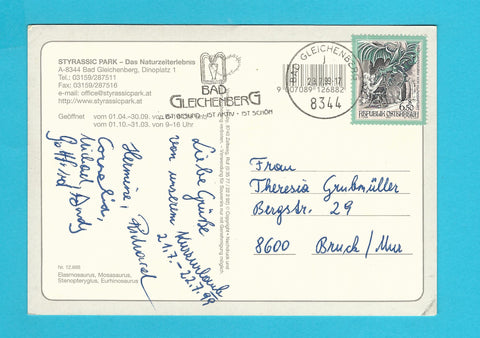 STYRASSIC PARK – Das Naturzeiterlebnis
A-8344 Bad Gleichenberg, Dinoplatz 1
Tel.: 03159/287511
Fax: 03159/287516
e-mail: office@styrassicpark.at
http://www.styrassicpark.at
Geöffnet vom 01.04.-30.09.
vom 01.10.-31.03. von 9-16 Uhr
BAD
GLEICHENBERG
IST GESUND - IST AKTIV - IST SCHÖN
BAD GLEICHENBERG
29.7.99-17
9 007089 126882
8344
6.50
REPUBLIK ÖSTERREICH
Liebe Grüße
von unserem Kurzurlaub
21.7. – 22.7.99
Hermine, Richard
Cornelia,
Michael
Gottfried, Andy
Frau
Theresia Grubmüller
Bergstr. 29
8600 Bruck/Mur
Nr. 12.885
Elasmosaurus, Mosasaurus,
Stenopterygius, Eurhinosaurus